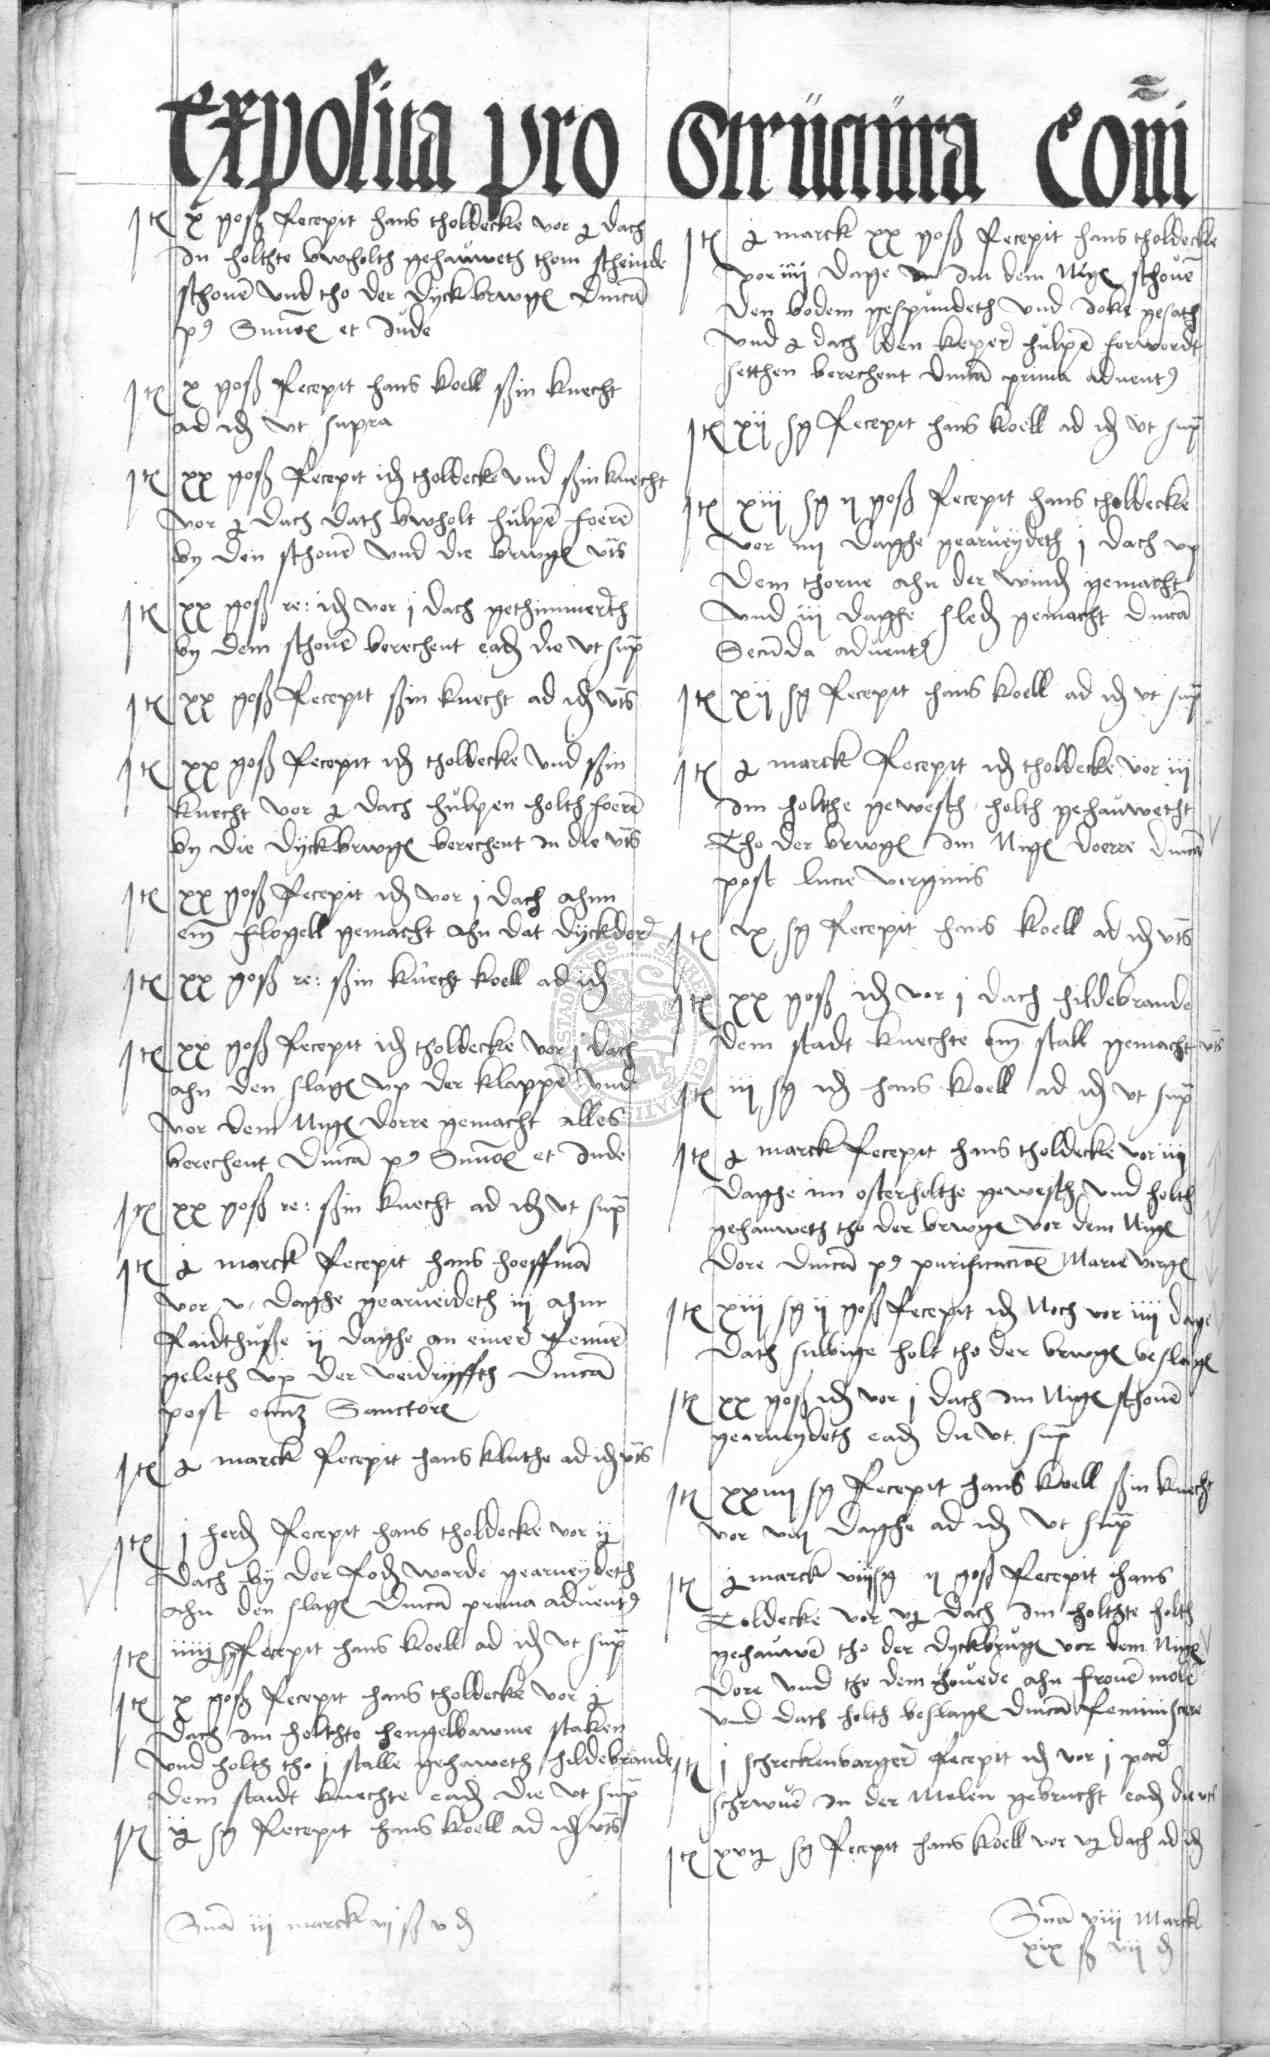 Exposita pro Structura Com̄i
Itē x goſß Recepit hans tholdecke vor ꝗ dach
In holthte bwholth gehauweth thom scheinde
schouē vnd tho der Dyckbrwgē Dn̄icā
pꝰ Simōē et Iude
Itē x goſß Recepit hans koell ßin knecht
ad idē vt supra
Itē xx goſß Recepit idē tholdecke vnd ßin knecht
vor ꝗ dach dath bwholt hulpē foerē
by den schouē vnd die brwgē vts̄
Itē xx goſß re: idē vor j dach gethimmerth
by dem schouē berechent eadē die vt sup̄
Itē xx goſß Recepit ßin knecht ad idē vts̄
Itē xx goſß Recepit idē tholdecke vnd ßin
knecht vor ꝗ dach hulpen holth foerē
by die Dyckbrwgē berechent In die vts̄
Itē xx goſß Recepit idē vor j dach ahnn
em̄ flogell gemacht ahn dat dyckdor
Itē xx goſß re: ßin knecht koell ad idē
Itē xx goſß Recepit idē tholdecke vor j dach
ahn den slagē vp der klappē vnd
vor dem Nigē dorre gemacht alles
berechent Dn̄icā pꝰ Simōē et Iude
Itē xx goſß re: ßin knecht ad idē vt sup̄
Itē ꝗ marck Recepit hans hoeffmā
vor v daghe gearueideth iij ahm
Raidthuße ij daghe an einer Rennē
geleth vp der veidryffth Dn̄icā
post om̄ Sanctorē
Itē ꝗ marck Recepit hans kluthe ad idē vts̄
Itē j ferdē Recepit hans tholdecke vor ij
dach by der Rodē warde gearueydeth
ahn den slagē Dn̄icā prima aduentꝰ
Itē iiiiꝗ sg Recepit hans koell ad idē vt sup̄
Itē x goſß Recepit hans tholdecke vor ꝗ
dach Im holthte hengelbawme staken
vnd holth tho j stalle gehaweth hildebrande
dem stadt knechte eadē die vt sup̄
Itē iꝗ sg Recepit hans koell ad idē vts̄
Sūā iij marck vj ß v d
Itē ꝗ marck xx goſß Recepit hans tholdecke
vor iiij dage In dem Nigē schouē
den bodem gespundeth vnd Icke gesath
vnd ꝗ dach den keper hulpē forwordt
setthen berechent Dn̄icā prima aduentꝰ
Itē xij sg Recepit hans koell ad idē vt sup̄
Itē xiij sg ij goſß Recepit hans tholdecke
vor iiij daghe gearueydeth j dach vp
dem thorne ahn der windē gemacht
vnd iij daghe sledē gemacht Dn̄icā
Secūda aduentꝰ
Itē xij sg Recepit hans koell ad idē vt sup̄
Itē ꝗ marck Recepit idē tholdecke vor iij
Im holthe gewesth holth gehauwetht
Tho der brwgē Im Nigē doerre Dn̄icā
post lucie virginis
Itē ix sg Recepit hans koell ad idē vts̄
Itē xx goſß idē vor j dach hildebrande
dem stadt knechte em̄ stall gemacht vts̄
Itē iij sg idē hans koell ad idē vt sup̄
Itē ꝗ marck Recepit hans tholdecke vor iij
daghe im osterholthe gewesth vnd holth
gehauweth tho der brwgē vor dem Nigē
dore Dn̄icā pꝰ purificacōē Marie virgē
Itē xiij sg ij goſß Recepit idē Noch vor iiij dage
dath suluige holt tho der brwgē beslagē
Itē xx goſß idē vor j dach Im Nigē schouē
gearueydeth eadē die vt sup̄
Itē xxiiij sg Recepit hans koell ßin knecht
vor viij daghe ad idē vt sup̄
Itē ꝗ marck viijsg ij goſß Recepit hans
Toldecke vor vꝗ dach Im holthte holth
gehauwē tho der dyckbrugē vor dem Nigē
dore vnd tho dem houede ahn frouē mole
vnd dath holth beslagē Dn̄icā Reminiscere
Itē j schreckenbarger Recepit idē vor j poer
schrwuē In der Molen gebrucht eadē die vts̄
Itē xviꝗ sg Recepit hans koell vor vꝗ dach ad idē
Sūā viij Marck
xix ß vij d